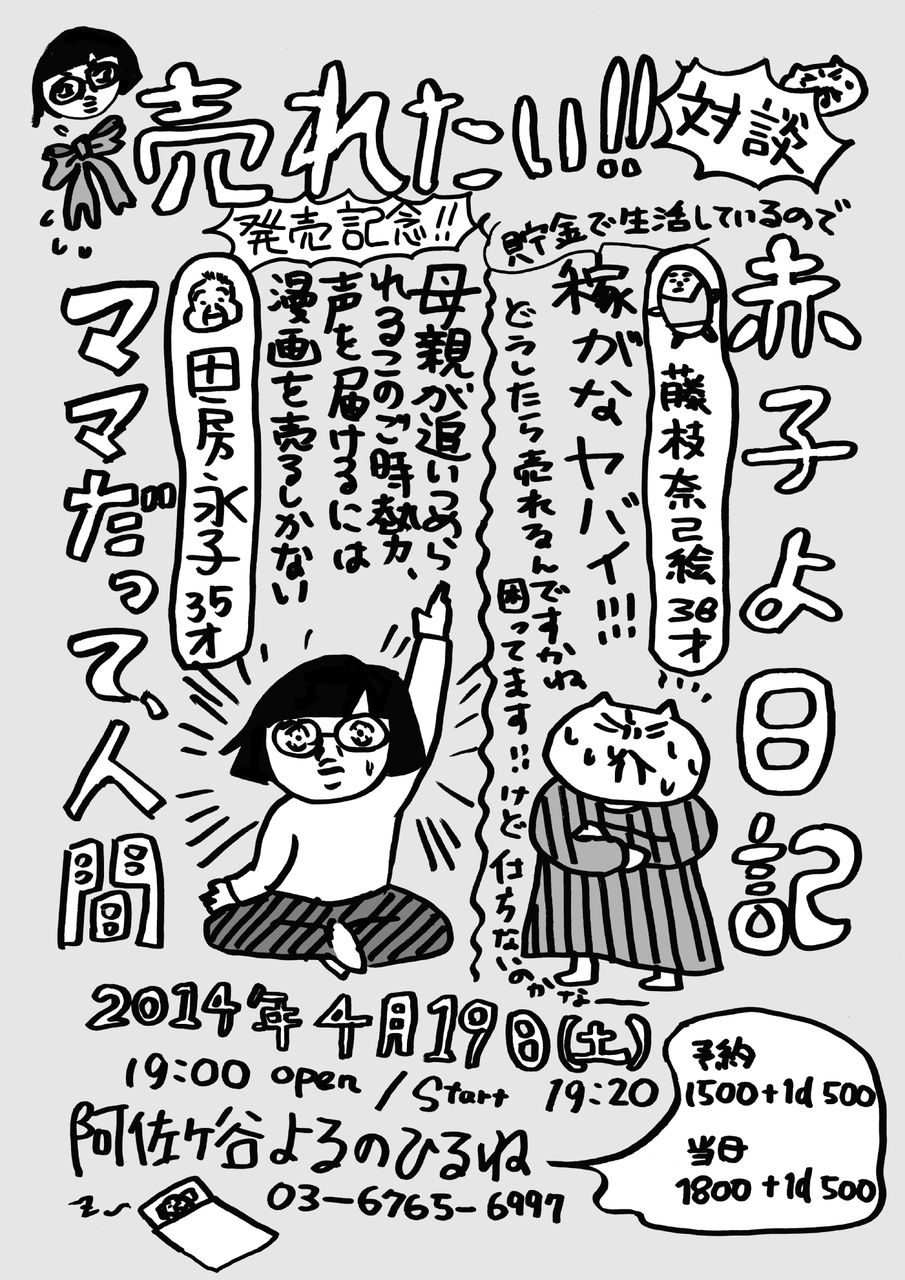 売れたい!!
対談
発売記念!!
赤子よ日記
貯金で生活しているので
藤枝奈己絵 38才
稼がなヤバイ!!!
どうしたら売れるんですかね
困ってます!!けど 仕方ないのかなー
母親が追いつめら
れるこのご時勢、
声を届けるには
漫画を売るしかない
田房永子 35才
ママだって、人間
2014年4月19日(土)
19:00 open / Start 19:20
阿佐ヶ谷よるのひるね
03-6765-6997
予約
1500+1d 500
当日
1800+1d 500
z〜